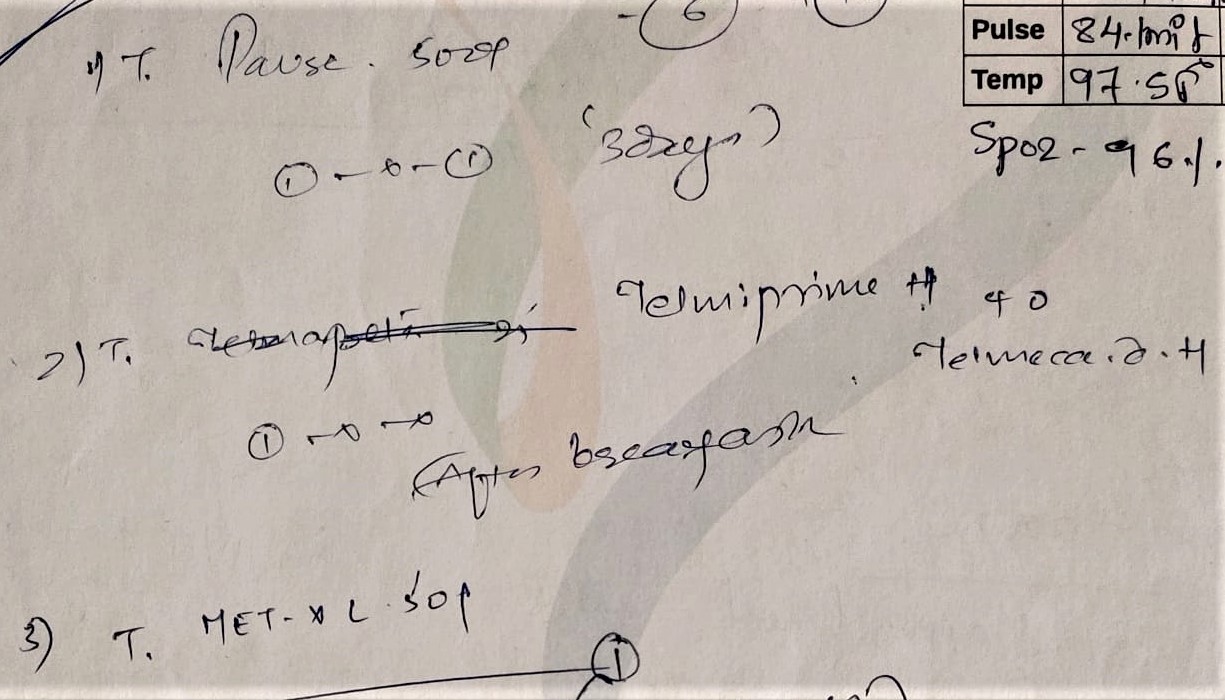 - 6
Pulse 84/mit
Temp 97.5F
Spo2 - 96 %.
1) T. Pause. 500
1 - 0 - 1 (3 days)
2) T. Telmiprime H 40
Telmeca. H
1 - 0 - 0
(After breakfast
3) T. MET-XL 50
1